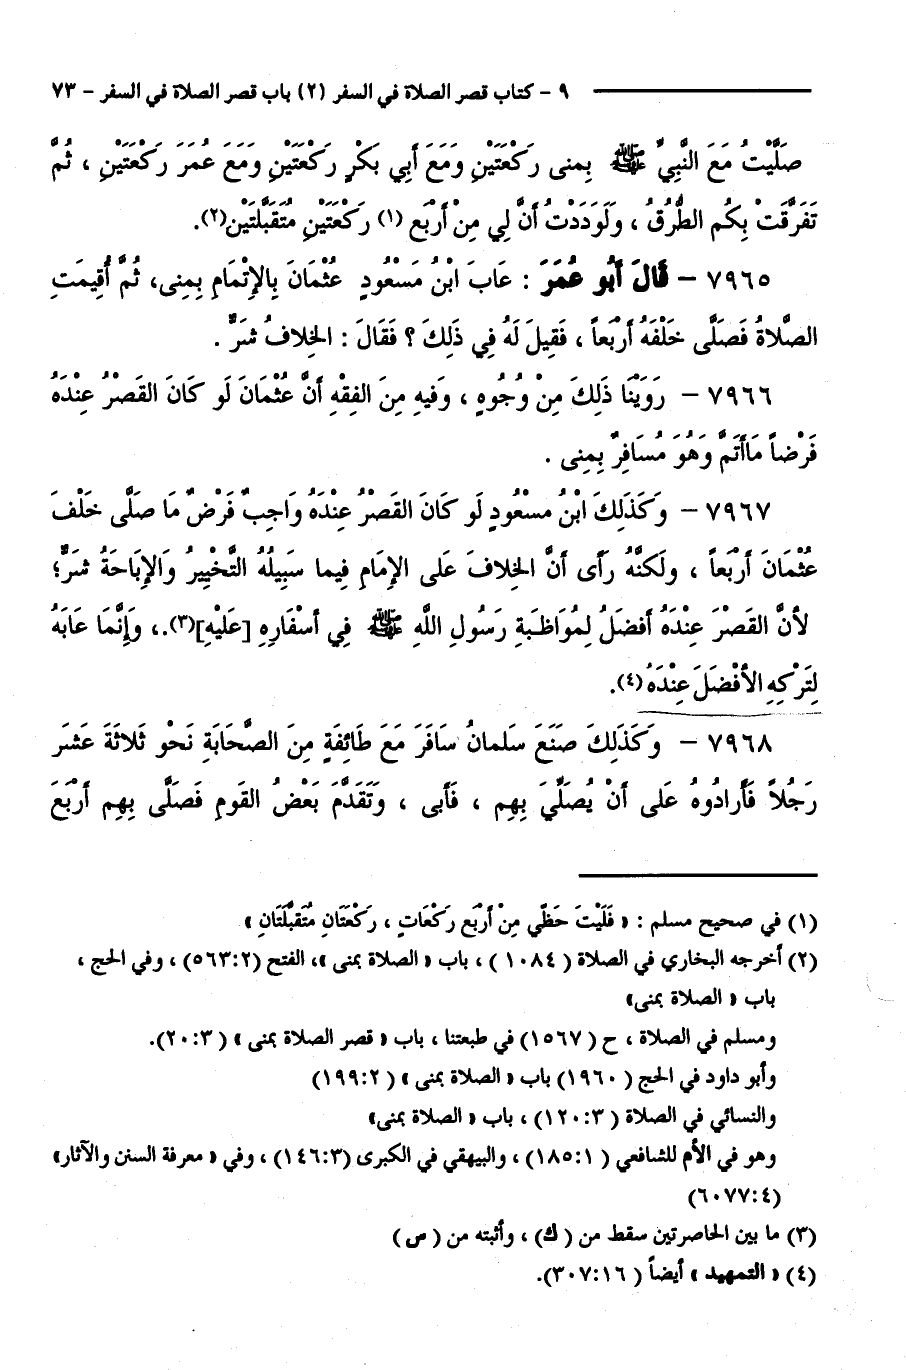 ٩ – كتاب قصر الصلاة في السفر (٢) باب قصر الصلاة في السفر – ٧٣
صَلَّيْتُ مَعَ النَّبِيِّ ﷺ بِمنى رَكْعَتَيْنِ وَمَعَ أَبِي بَكْرٍ رَكْعَتَيْنِ وَمَعَ عُمَرَ رَكْعَتَيْنِ ، ثُمَّ
تَفَرَّقَتْ بِكُم الطُّرُقُ ، وَلَوَدَدْتُ أَنَّ لِي مِنْ أَرْبَعِ (١) رَكْعَتَيْنِ مُتَقَبَّلَتَيْنِ(٢).
٧٩٦٥ – قَالَ أَبُو عُمَرَ : عَابَ ابْنُ مَسْعُودٍ عُثْمَانَ بِالإِتْمَامِ بِمِنى، ثُمَّ أُقِيمَتِ
الصَّلاةُ فَصَلَّى خَلْفَهُ أَرْبَعاً ، فَقِيلَ لَهُ فِي ذَلِكَ ؟ فَقَالَ : الخِلافُ شَرٌّ .
٧٩٦٦ – رَوَيْنَا ذَلِكَ مِنْ وُجُوهٍ ، وَفِيهِ مِنَ الفِقْهِ أَنَّ عُثْمَانَ لَو كَانَ القَصْرُ عِنْدَهُ
فَرْضاً مَاأَتَمَّ وَهُوَ مُسَافِرٌ بِمِنى .
٧٩٦٧ – وَكَذَلِكَ ابْنُ مسْعُودٍ لَو كَانَ القَصْرُ عِنْدَهُ وَاجِبٌ فَرْضٌ مَا صَلَّى خَلْفَ
عُثْمَانَ أَرْبَعاً ، ولَكنَّهُ رَأَى أَنَّ الخِلافَ عَلى الإِمَامِ فِيما سَبِيلُهُ التَّخْيِيرُ وَالإِبَاحَةُ شَرٌّ؛
لأنَّ القَصْرَ عِنْدَهُ أَفضَلُ لِموَاظَبَةِ رَسُولِ اللَّهِ ﷺ فِي أَسْفَارِهِ [عَليْهِ](٣).، وَإِنَّمَا عَابَهُ
لِتَرْكِهِ الأَفْضَلَ عِنْدَهُ(٤).
٧٩٦٨ – وَكَذَلِكَ صَنَعَ سَلمانُ سَافَرَ مَعَ طَائِفَةٍ مِنَ الصَّحَابَةِ نَحْو ثَلاثَةَ عَشَر
رَجُلاً فَأَرادُوهُ عَلى أَنْ يُصَلِّيَ بِهِم ، فَأَبى ، وَتَقَدَّمَ بَعْضُ القَومِ فَصَلَّى بِهِم أَرْبَعَ
(١) في صحيح مسلم : « فَلَيْتَ حَظِّي مِنْ أَرْبَعِ رَكْعَاتٍ ، رَكْعَتَانِ مُتَقَبَّلَتَانِ »
(٢) أخرجه البخاري في الصلاة ( ١٠٨٤ ) ، باب « الصلاة بمنى »، الفتح (٥٦٣:٢) ، وفي الحج ،
باب « الصلاة بمنى»
ومسلم في الصلاة ، ح ( ١٥٦٧) في طبعتنا ، باب « قصر الصلاة بمنى » ( ٢٠:٣).
وأبو داود في الحج ( ١٩٦٠) باب « الصلاة بمنى » ( ١٩٩:٢)
والنسائي في الصلاة ( ١٢٠:٣) ، باب « الصلاة بمنى»
وهو في الأم للشافعي ( ١٨٥:١) ، والبيهقي في الكبرى (١٤٦:٣) ، وفي « معرفة السنن والآثار»
(٦٠٧٧:٤)
(٣) ما بين الحاصرتين سقط من ( ك) ، وأثبته من ( ص )
(٤) « التمهيد » أيضاً ( ٣٠٧:١٦).